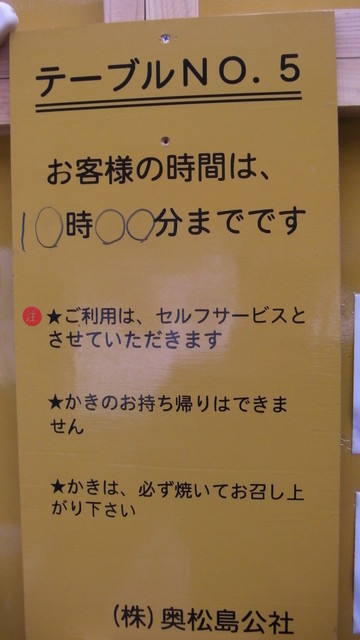 テーブルNO.5
お客様の時間は、
10時00分までです
注 ★ご利用は、セルフサービスと
させていただきます
★かきのお持ち帰りはできま
せん
★かきは、必ず焼いてお召し上
がり下さい
(株)奥松島公社